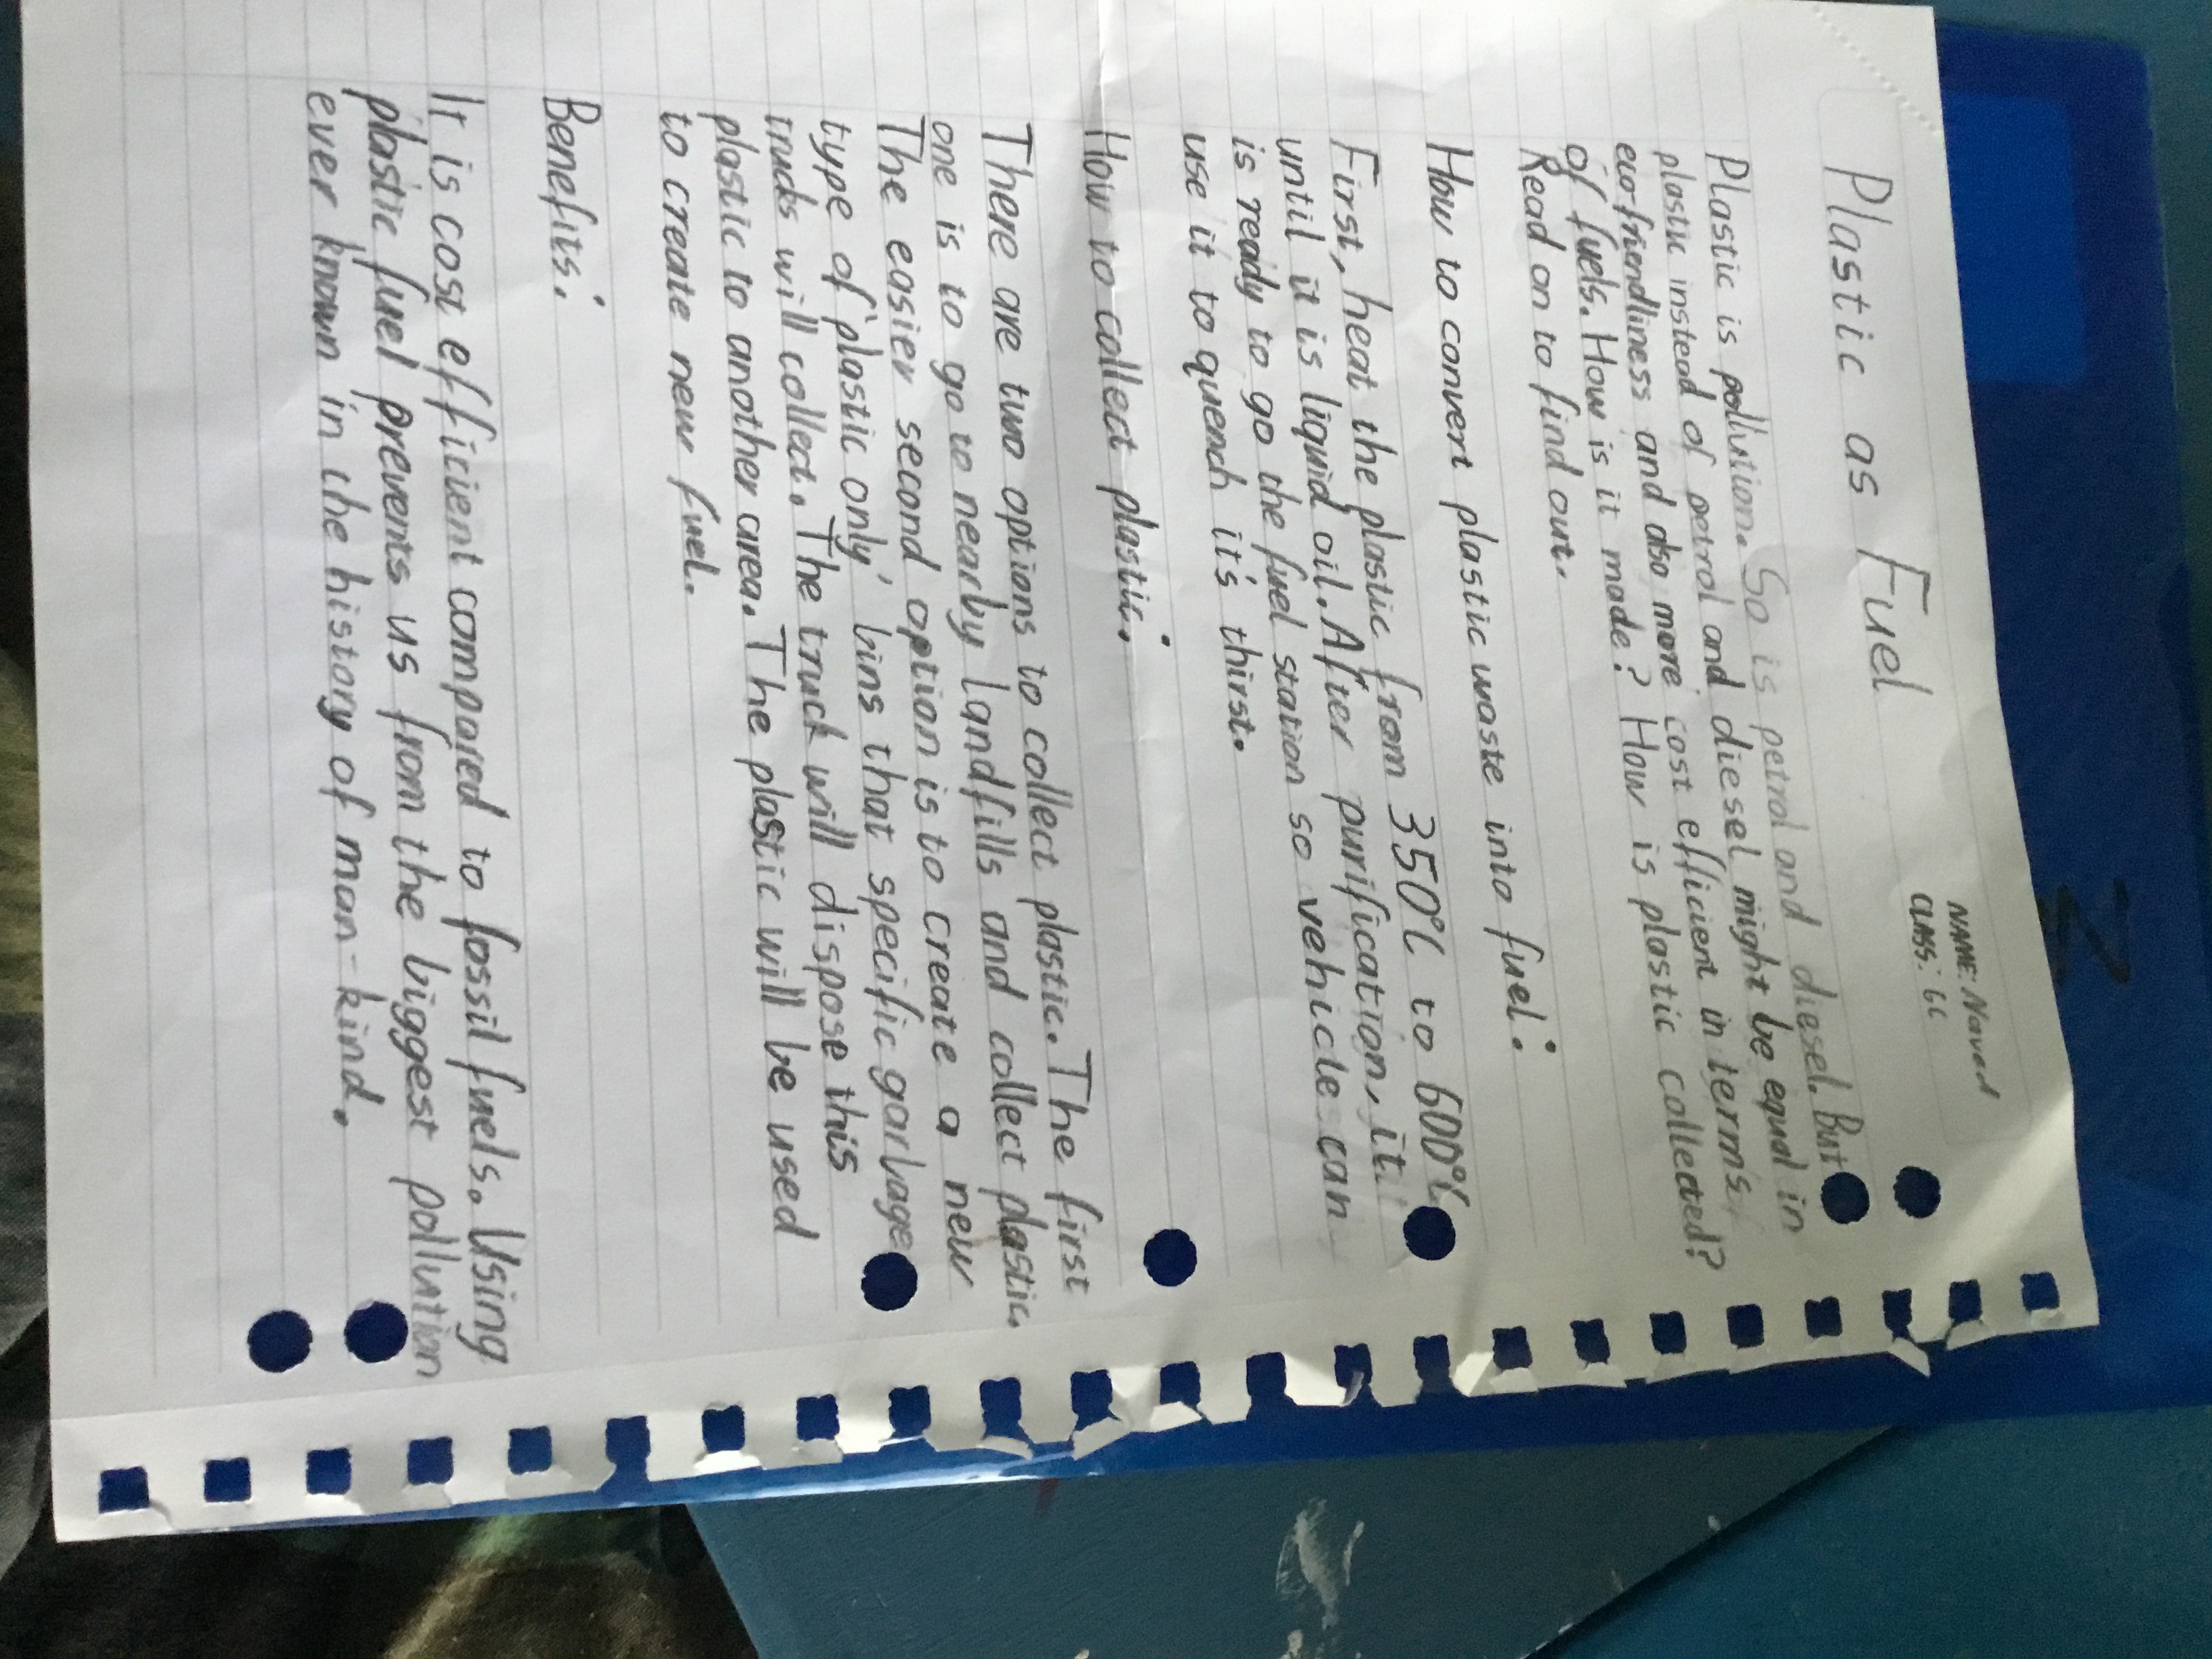 NAME: Naved
CLASS: 6C
Plastic as Fuel
Plastic is pollution. So is petrol and diesel. But
plastic instead of petrol and diesel might be equal in
eco-friendliness and also more cost efficient in terms
of fuels. How is it made? How is plastic collected?
Read on to find out.
How to convert plastic waste into fuel:
First, heat the plastic from 350°C to 600°C
until it is liquid oil. After purification, it
is ready to go the fuel station so vehicle can
use it to quench it's thirst.
How to collect plastic:
There are two options to collect plastic. The first
one is to go to nearby landfills and collect plastic.
The easier second option is to create a new
type of 'plastic only' bins that specific garbage
trucks will collect. The truck will dispose this
plastic to another area. The plastic will be used
to create new fuel.
Benefits:
It is cost efficient compared to fossil fuels. Using
plastic fuel prevents us from the biggest pollution
ever known in the history of man-kind.